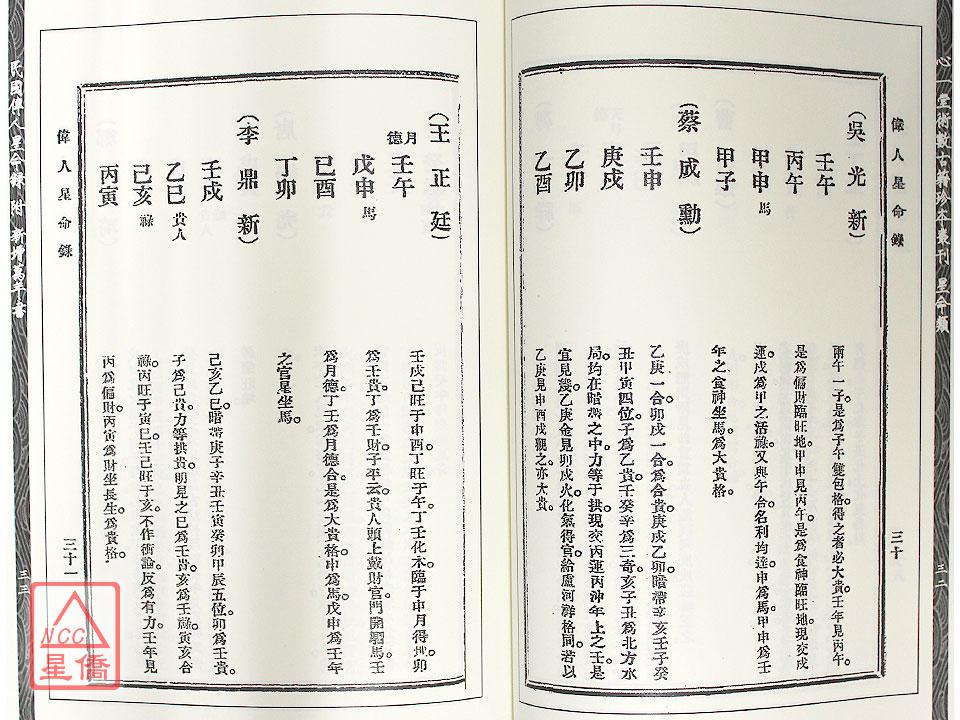 心一堂術數古籍珍本叢刊 星命類
三二
偉人星命錄
三十
(吳光新)
壬午
丙午
甲申 馬
甲子
兩午一子。是為子午雙包格。得之者必大貴。壬年見丙午。
是為偏財臨旺地。甲申見丙午。是為食神臨旺地。現交戊
運。戊為甲之活祿。又與午合。名利均達。申為馬。甲申為壬
年之食神坐馬。為大貴格。
(蔡成勳)
壬申
庚戌
乙卯
乙酉
乙庚一合。卯戌一合。為合貴。庚戌乙卯。暗帶辛亥壬子癸
丑甲寅四位。子為乙貴。壬癸辛為三奇。亥子丑為北方水
局。均在暗帶之中。力等于拱。現交丙運。丙沖年上之壬。是
宜見幾。乙庚金見卯戌火。化氣得官。給盧河祥格同。若以
乙庚見申酉戌觀之。亦大貴。
(王正廷)
月德 壬午
戊申 馬
己酉
丁卯
壬戌己旺于申酉。丁旺于午。丁壬化木。臨于申月得地。卯
為壬貴。丁為壬財。子平云。貴人頭上戴財官。門開驅馬。壬
為月德。丁壬為月德合。是為大貴格。申為馬。戊申為壬年
之官星坐馬。
(李鼎新)
壬戌
乙巳 貴人
己亥 祿
丙寅
己亥乙巳。暗帶庚子辛丑壬寅癸卯甲辰五位。卯為壬貴。
子為己貴。力等拱貴。明見之巳為壬貴。亥為壬祿。寅亥合
祿。丙旺于寅巳。壬己旺于亥。不作衝論。反為有力。壬年見
丙為偏財。丙寅為財坐長生。為貴格。
偉人星命錄
三十一
民國偉人星命錄 附 新增萬年書
三三
NCC
星僑